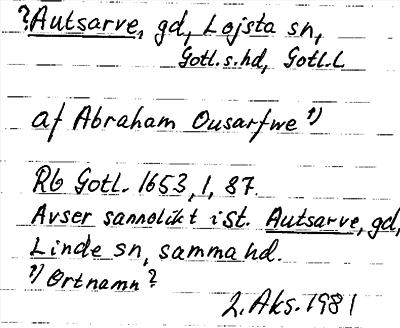 ?Autsarve, gd, Lojsta sn,
Gotl.s.hd, Gotl.l.
af Abraham Ousarfwe 1)
Rb Gotl. 1653, 1, 87.
Avser sannolikt ist. Autsarve, gd,
Linde sn, samma hd.
1) Ortnamn?
2. Aks. 1981